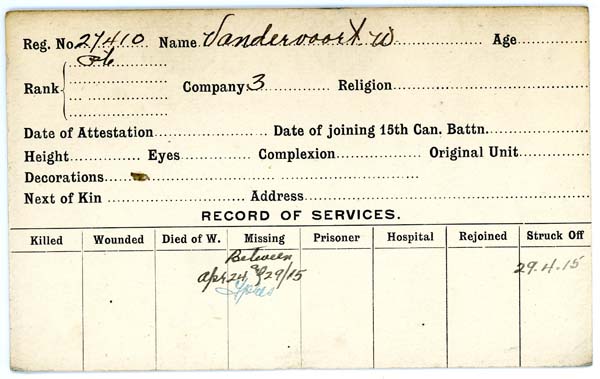 Reg. No. 27410 Name Vandervoort W Age
Pte
Rank Company 3 Religion
Date of Attestation Date of joining 15th Can. Battn.
Height Eyes Complexion Original Unit
Decorations
Next of Kin Address
RECORD OF SERVICES.
Killed Wounded Died of W. Missing Prisoner Hospital Rejoined Struck Off
Between
Apr 24 & 29/15 29.4.15
Ypres